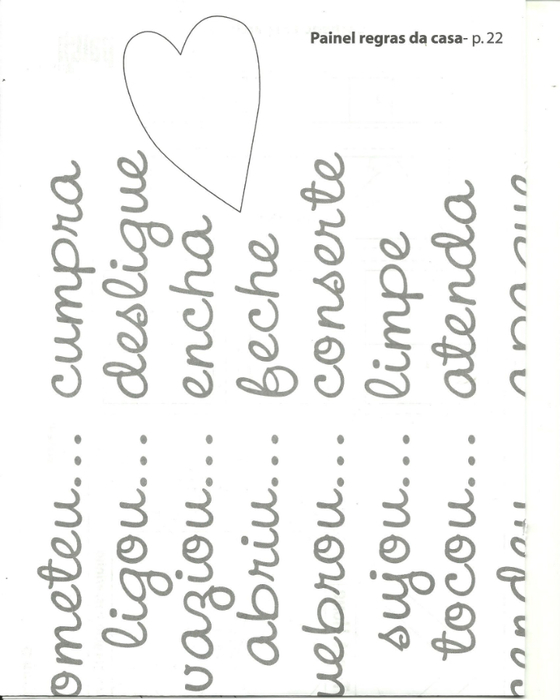 Painel regras da casa- p. 22
ometeu... cumpra
ligou... desligue
vaziou... encha
abriu... feche
uebrou... conserte
sujou... limpe
tocou... atenda